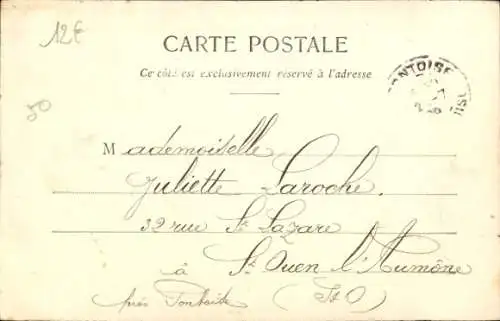 12€
CARTE POSTALE
Ce côté est exclusivement réservé à l'adresse
PONTOISE
50
Mademoiselle
Juliette Laroche.
32 rue St Lazare
à St Ouen l'Aumône
près Pontoise (S&O)